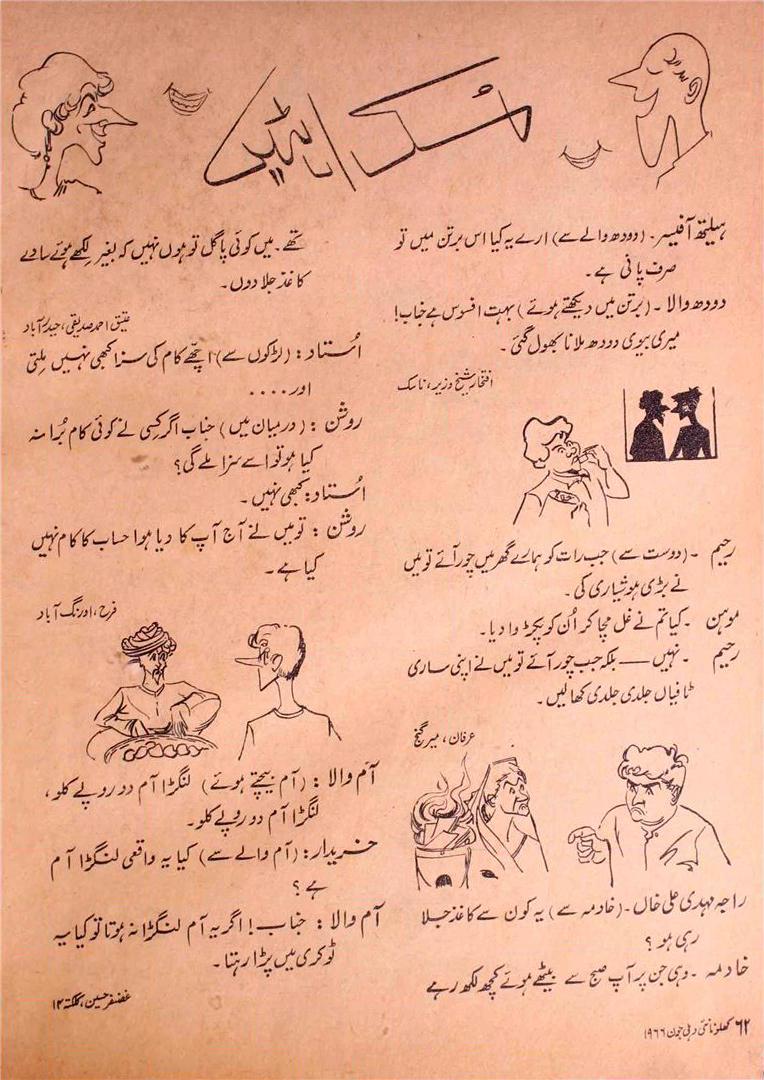 مُسکراہٹیں
ہیلتھ آفیسر۔ (دودھ والے سے) ارے یہ کیا اس برتن میں تو
صرف پانی ہے۔
دودھ والا ۔ (برتن میں دیکھتے ہوئے) بہت افسوس ہے جناب!
میری بیوی دودھ ملانا بھول گئی۔
افتخار شیخ وزیر، ناسک
رحیم ۔ (دوست سے) جب رات کو ہمارے گھر میں چور آئے تو میں
نے بڑی ہوشیاری کی۔
موہن ۔ کیا تم نے غل مچا کر اُن کو پکڑوا دیا۔
رحیم ۔ نہیں —— بلکہ جب چور آئے تو میں نے اپنی ساری
ٹافیاں جلدی جلدی کھالیں۔
عرفان، میر گنج
راجہ مہدی علی خاں ۔ (خادمہ سے) یہ کون سے کاغذ جلا
رہی ہو ؟
خادمہ ۔ وہی جن پر آپ صبح سے بیٹھے ہوئے کچھ لکھ رہے
تھے۔ میں کوئی پاگل تو ہوں نہیں کہ بغیر لکھے ہوئے سادے
کاغذ جلا دوں۔
عتیق احمد صدیقی، حیدرآباد
اُستاد : (لڑکوں سے) اچھے کام کی سزا کبھی نہیں ملتی
اور ....
روشن : (درمیان میں) جناب اگر کسی نے کوئی کام بُرا نہ
کیا ہو تو اسے سزا ملے گی؟
اُستاد : کبھی نہیں۔
روشن : تو میں نے آج آپ کا دیا ہوا حساب کا کام نہیں
کیا ہے۔
فرح، اورنگ آباد
آم والا : (آم بیچتے ہوئے) لنگڑا آم دو روپے کلو،
لنگڑا آم دو روپے کلو۔
خریدار : (آم والے سے) کیا یہ واقعی لنگڑا آم
ہے ؟
آم والا : جناب! اگر یہ آم لنگڑا نہ ہوتا تو کیا یہ
ٹوکری میں پڑا رہتا۔
غضنفر حسین، کلکتہ ۱۴
۶۲ کھلونا نئی دہلی جون ۱۹۶۶